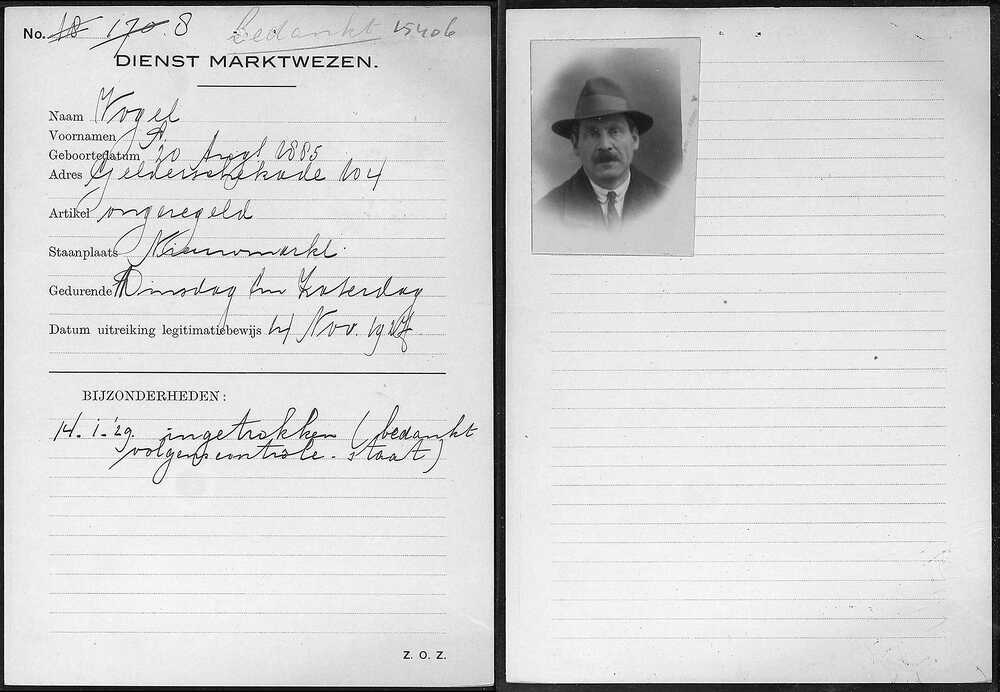 No. 18 170. 8 bedankt 15406
DIENST MARKTWEZEN.
Naam Vogel
Voornamen A.
Geboortedatum 20 April 1885
Adres Gelderschekade 104
Artikel ongeregeld
Staanplaats Nieuwmarkt.
Gedurende Dinsdag t/m Zaterdag
Datum uitreiking legitimatiebewijs 14 Nov. 1927
BIJZONDERHEDEN:
14-1-'29. ingetrokken (bedankt
volgens controle-staat)
Z. O. Z.